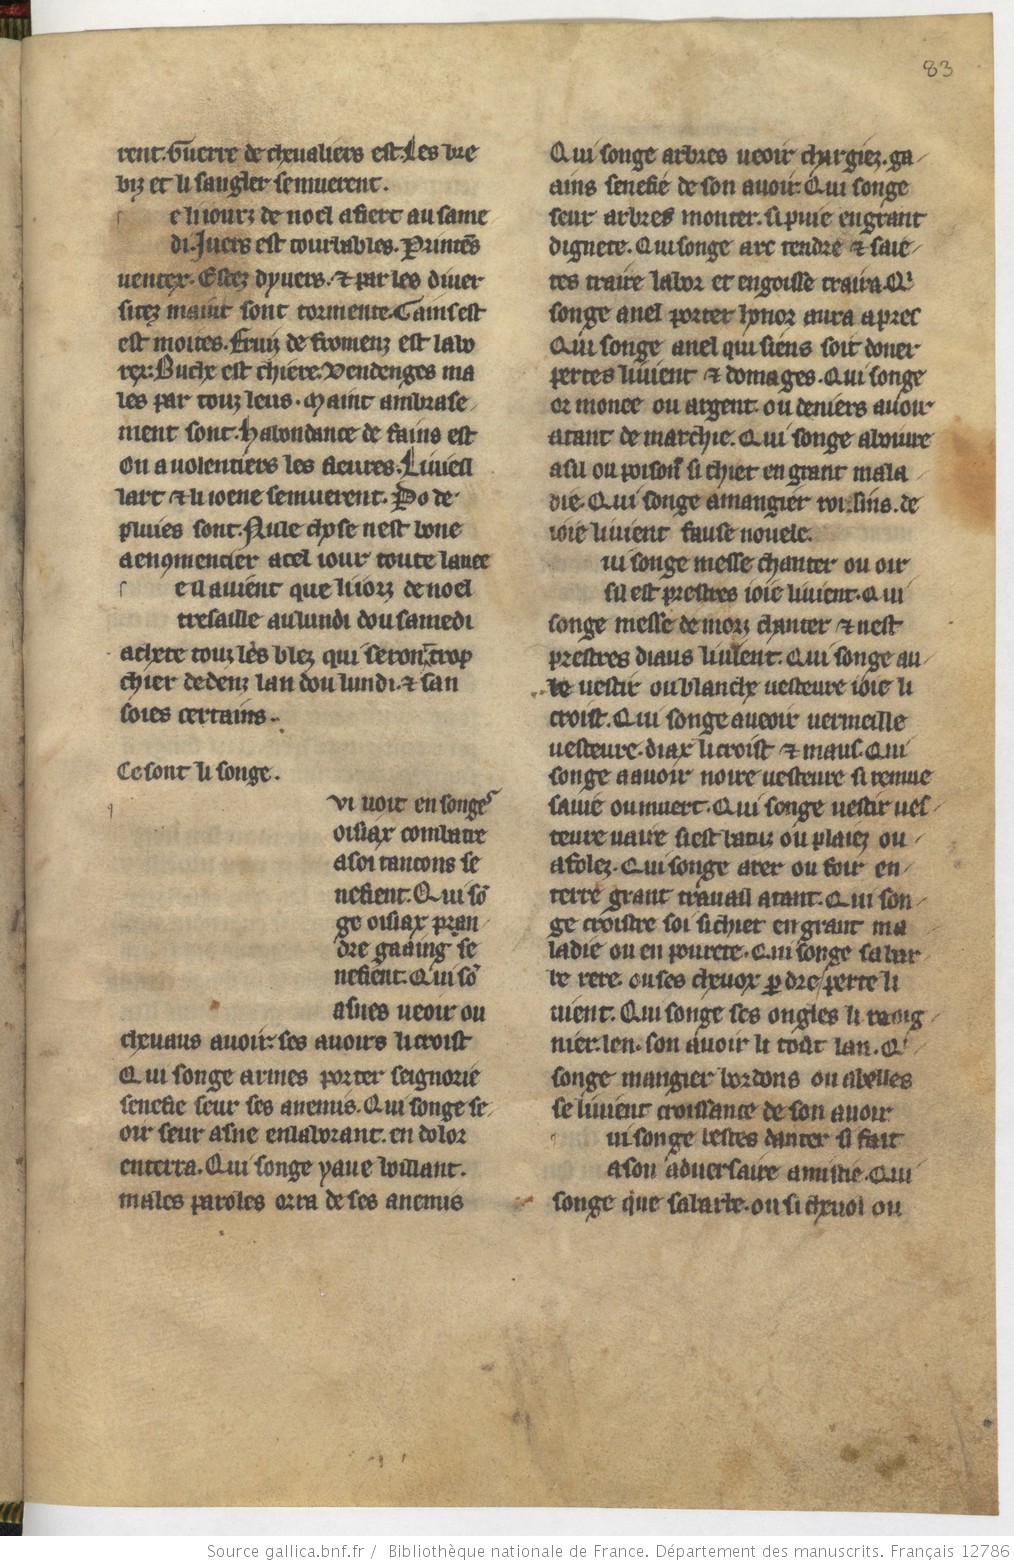 83
rent. Guerre de cheualiers est. Les bre
biz et li sangler semuerent.
e li iourz de noel afiert au same
di. Juers est tourbables. Printēs
uentex. Estez dyuers. ⁊ par les diuer
sitez maint sont tormente. Gainsest
est moites. Fruiz de fromenz est labo
rez: Buche est chiere. Vendenges ma
les par touz leus. Maint ambrase
ment sont. Habondance de fains est
On a uolentiers les fieures. Liuiell
lart ⁊ li ioene semuerent. Po de
pluies sont. Nule chose nest bone
a enqmencier a cel iour toute lanee
e il auient que li iorz de noel
tresaille au lundi dou samedi
achete touz les blez qui seront trop
chier dedenz lan dou lundi. ⁊ san
soies certains.
Ce sont li songe.
vi uoit en songes
oisiax combatre
a soi tancons se
nefient. Qui sō
ge oisiax pran
dre gaaing se
nefient. Qui sō
asnes ueoir ou
cheuaus auoir. ses auoirs li croist
Qui songe armes porter seignorie
senefie seur ses anemis. Qui songe se
oir seur asne en laborant. en dolor
enterra. Qui songe yaue boillant.
males paroles orra de ses anemis
Qui songe arbres ueoir chargiez. ga
ains senefie de son auoir. Qui songe
seur arbres monter. si puie en grant
dignete. Qui songe arc tendre ⁊ saie
tes traire labor et engoisse traira. Qi
songe anel porter honor aura apres
Qui songe anel qui siens soit doner
pertes li uient ⁊ domages. Qui songe
or monee ou argent. ou deniers auoir
atant de marchie. Qui songe aboiure
asil ou poison si chiet en grant mala
die. Qui songe amangier roisins. de
ioie li uient fause nouele.
ui songe messe chanter ou oir
sil est prestres ioie li uient. Qui
songe messe de morz chanter ⁊ nest
prestres diaus li uient. Qui songe au
be uestir ou blanche uesteure ioie li
croist. Qui songe aueoir uermeille
uesteure. diax li croist ⁊ maus. Qui
songe a auoir noire uesteure si remue
sauie ou muert. Qui songe uestir ues
teure uaire si est batuz ou plaiez ou
afolez. Qui songe arer ou foir en
terre grant trauail atant. Qui son
ge croistre soi si chiet en grant ma
ladie ou en pourete. Qui songe sa bar
be rere. ou ses cheuox ꝑdre perte li
uient. Qui songe ses ongles li rooig
nier. len. son auoir li tout lan. Qi
songe mangier bordons ou abelles
se li uient croissance de son auoir
ui songe bestes danter si fait
a son aduersaire amistie. Qui
songe que sa barbe. ou si cheuol ou
Source gallica.bnf.fr / Bibliothèque nationale de France. Département des manuscrits. Français 12786